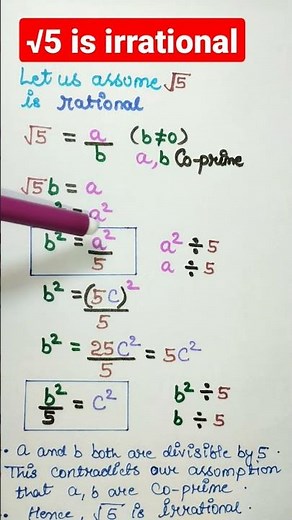 √5 is irrational
Let us assume √5
is rational
√5 = a/b (b≠0)
a, b Co-prime
√5b = a
b² = a²
b² = a²/5
a² ÷ 5
a ÷ 5
b² = (5c)²/5
b² = 25c²/5 = 5c²
b²/5 = c²
b² ÷ 5
b ÷ 5
• a and b both are divisible by 5.
This contradicts our assumption
that a, b are Co-prime.
• Hence, √5 is irrational.